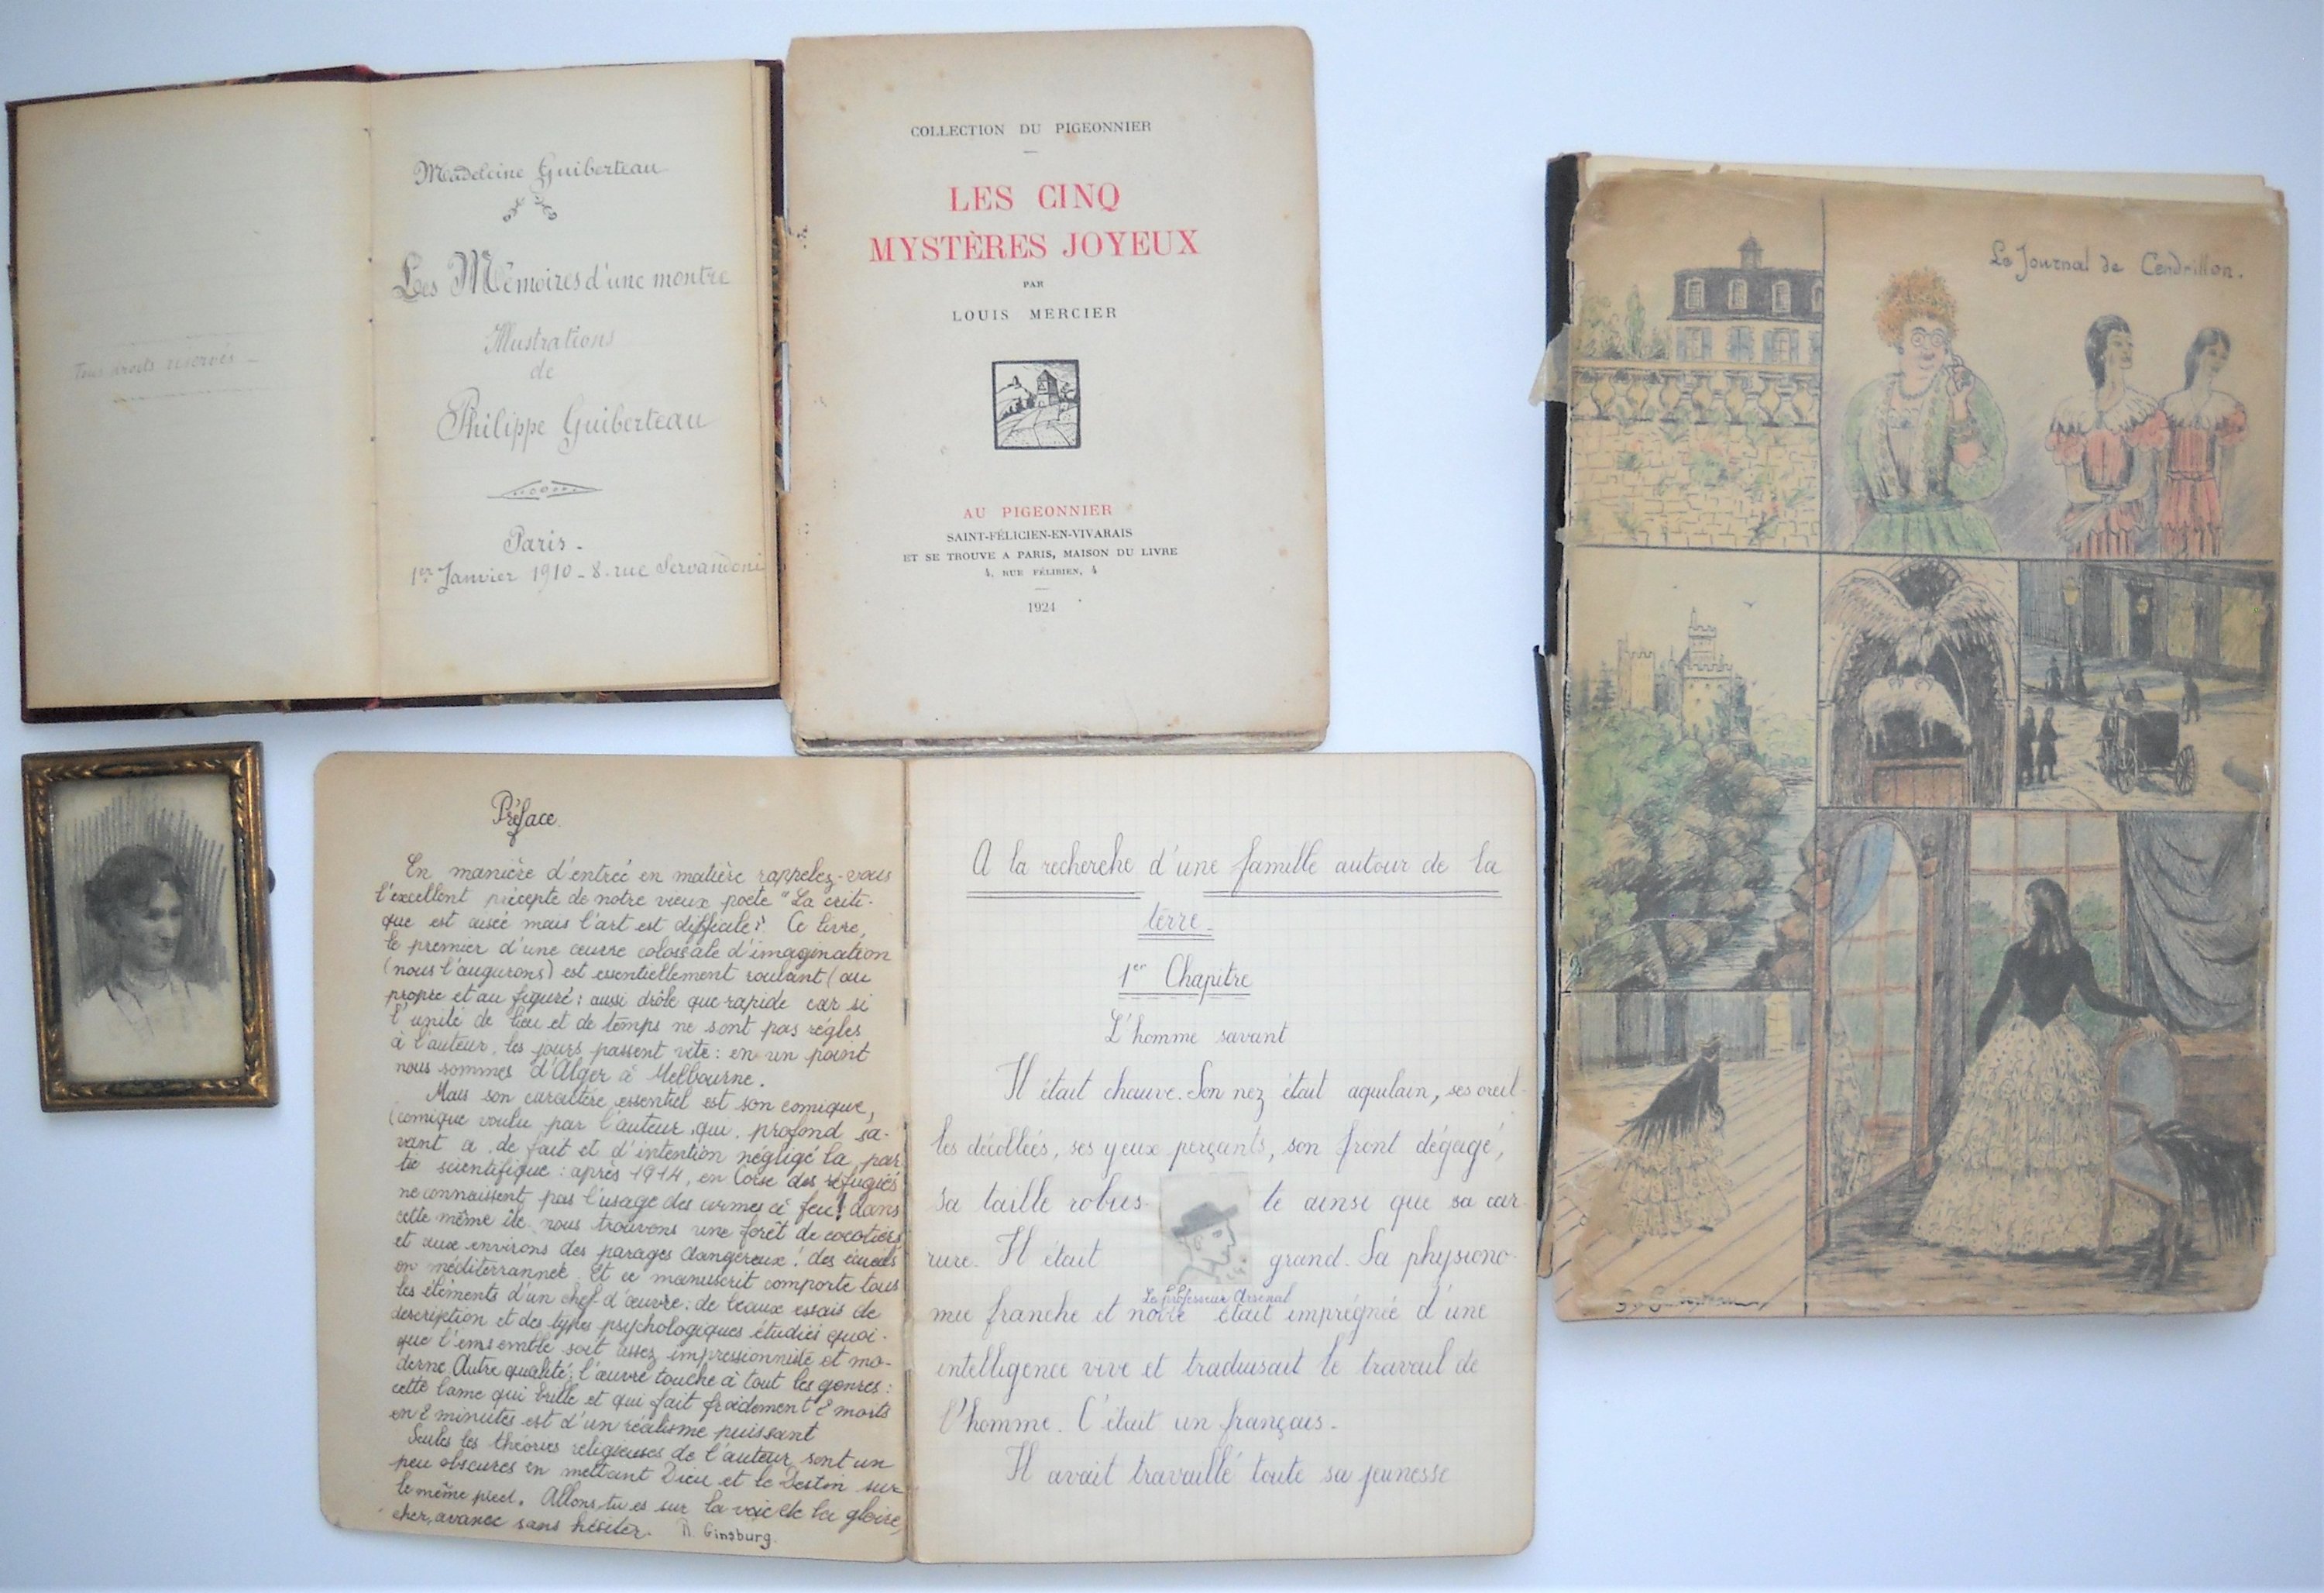 Tous droits réservés _
Madeleine Guiberteau
Les Mémoires d'une montre
Illustrations
de
Philippe Guiberteau
Paris -
1er Janvier 1910 - 8. rue Servandoni
COLLECTION DU PIGEONNIER
LES CINQ
MYSTÈRES JOYEUX
PAR
LOUIS MERCIER
AU PIGEONNIER
SAINT-FÉLICIEN-EN-VIVARAIS
ET SE TROUVE A PARIS, MAISON DU LIVRE
4, RUE FÉLIBIEN, 4
1924
Le Journal de Cendrillon.
Préface
En manière d'entrée en matière rappelez-vous
l'excellent précepte de notre vieux poète "La criti-
que est aisée mais l'art est difficile". Ce livre,
le premier d'une œuvre colossale d'imagination
(nous l'augurons) est essentiellement roulant (au
propre et au figuré: aussi drôle que rapide car si
l'unité de lieu et de temps ne sont pas règles
à l'auteur, les jours passent vite: en un point
nous sommes d'Alger à Melbourne.
Mais son caractère essentiel est son comique,
(comique voulu par l'auteur qui, profond sa-
vant a, de fait et d'intention négligé la par
tie scientifique: après 1914, en Corse des réfugiés
ne connaissent pas l'usage des armes à feu! dans
cette même île nous trouvons une forêt de cocotiers
et aux environs des parages dangereux! des écueils
en méditerrannée. Et ce manuscrit comporte tous
les éléments d'un chef-d'œuvre: de beaux essais de
description et des types psychologiques étudiés quoi-
que l'ensemble soit assez impressionniste et mo-
derne. Autre qualité: l'œuvre touche à tout les genres:
cette lame qui brille et qui fait froidement 2 morts
en 2 minutes est d'un réalisme puissant
Seules les théories religieuses de l'auteur sont un
peu obscures en mettant Dieu et le Destin sur
le même pied. Allons, tu es sur la voie de la gloire,
cher, avance sans hésiter. R. Ginsburg
A la recherche d'une famille autour de la
terre -
1er Chapitre
L'homme savant
Il était chauve. Son nez était aquilain, ses oreil-
les décollées, ses yeux perçants, son front dégagé,
sa taille robus- te ainsi que sa car
rure. Il était grand. Sa physiono-
Le professeur Arsenal
mie franche et noble était imprégnée d'une
intelligence vive et traduisait le travail de
l'homme. C'était un français -
Il avait travaillé toute sa jeunesse